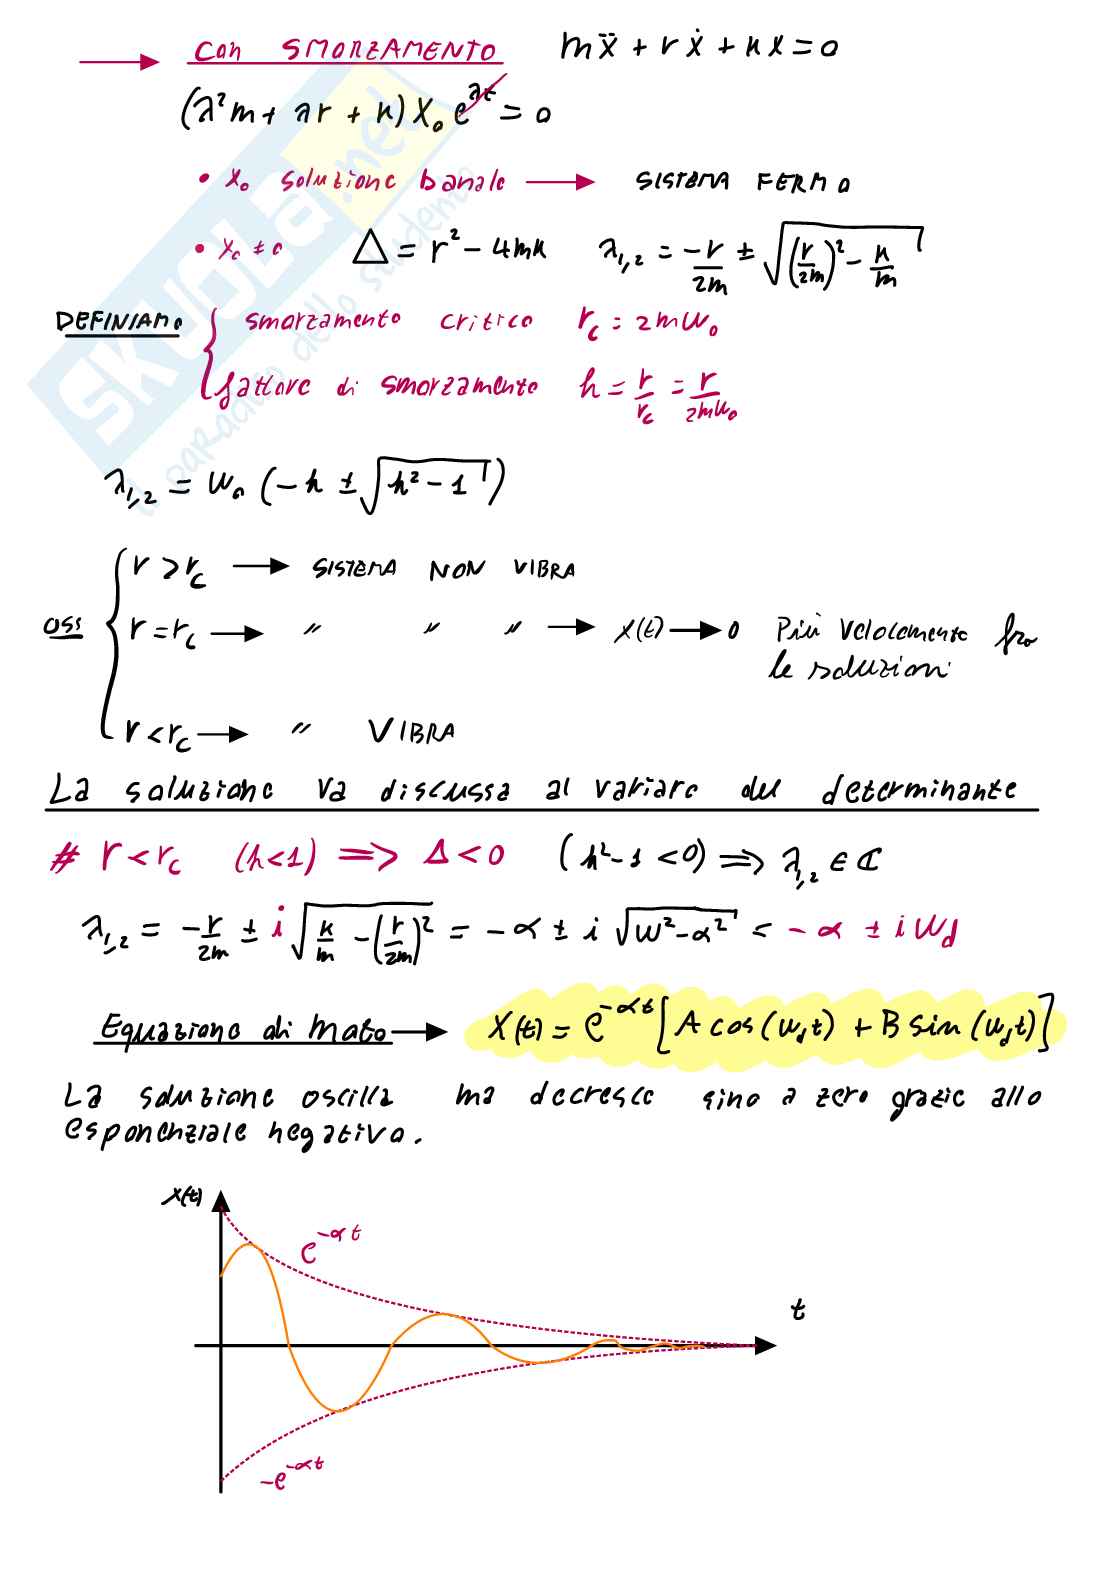 con SMORZAMENTO mẍ + rẋ + kx = 0
(λ²m + λr + k) X₀ e^λt = 0
• X₀ soluzione banale → SISTEMA FERMO
• X₀ ≠ 0 Δ = r² - 4mk λ₁,₂ = -r/2m ± √((r/2m)² - k/m)
DEFINIAMO { smorzamento critico r_c = 2mω₀
fattore di smorzamento h = r/r_c = r/2mω₀
λ₁,₂ = ω₀ (-h ± √(h² - 1))
OSS { r > r_c → SISTEMA NON VIBRA
r = r_c → " " " → x(t) → 0 Più velocemente fra
le soluzioni
r < r_c → " VIBRA
La soluzione va discussa al variare del determinante
# r < r_c (h<1) ⇒ Δ < 0 (h² - 1 < 0) ⇒ λ₁,₂ ∈ ℂ
λ₁,₂ = -r/2m ± i √(k/m - (r/2m)²) = -α ± i √(ω² - α²) = -α ± i ω_d
Equazione di moto → X(t) = e^-αt [A cos(ω_d t) + B sin(ω_d t)]
La soluzione oscilla ma decresce sino a zero grazie allo
esponenziale negativo.
x(t)
e^-αt
t
-e^-αt
SKUOLA.net
il paradiso dello studente